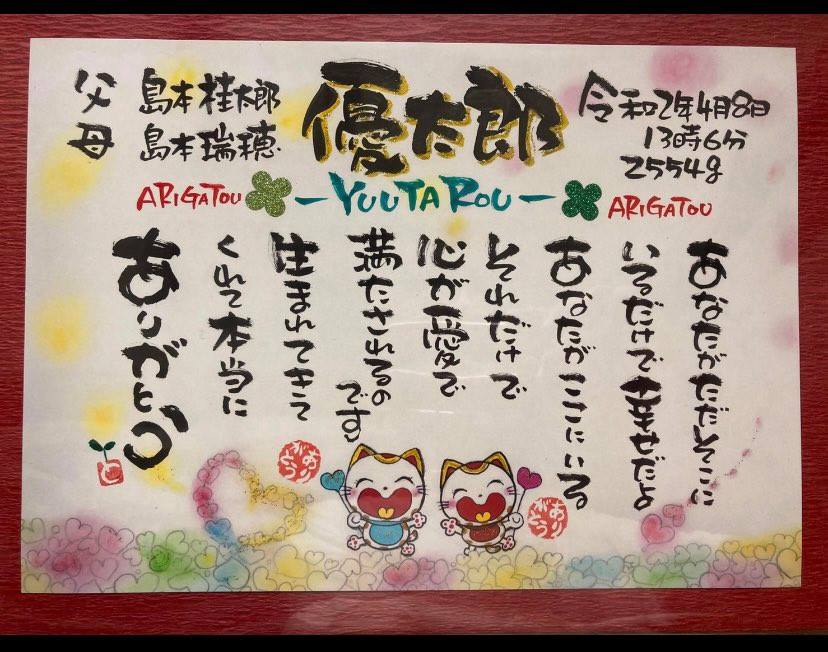 優太郎
父 島本桂太郎
母 島本瑞穂
令和2年4月8日
13時6分
2554g
ARIGATOU
－YUUTAROU－
ARIGATOU
あなたがただそこに
いるだけで幸せだよ
あなたがここにいる
それだけで
心が愛で
満たされるの
です
生まれてきて
くれて本当に
ありがとう
ありがとう
ありがとう